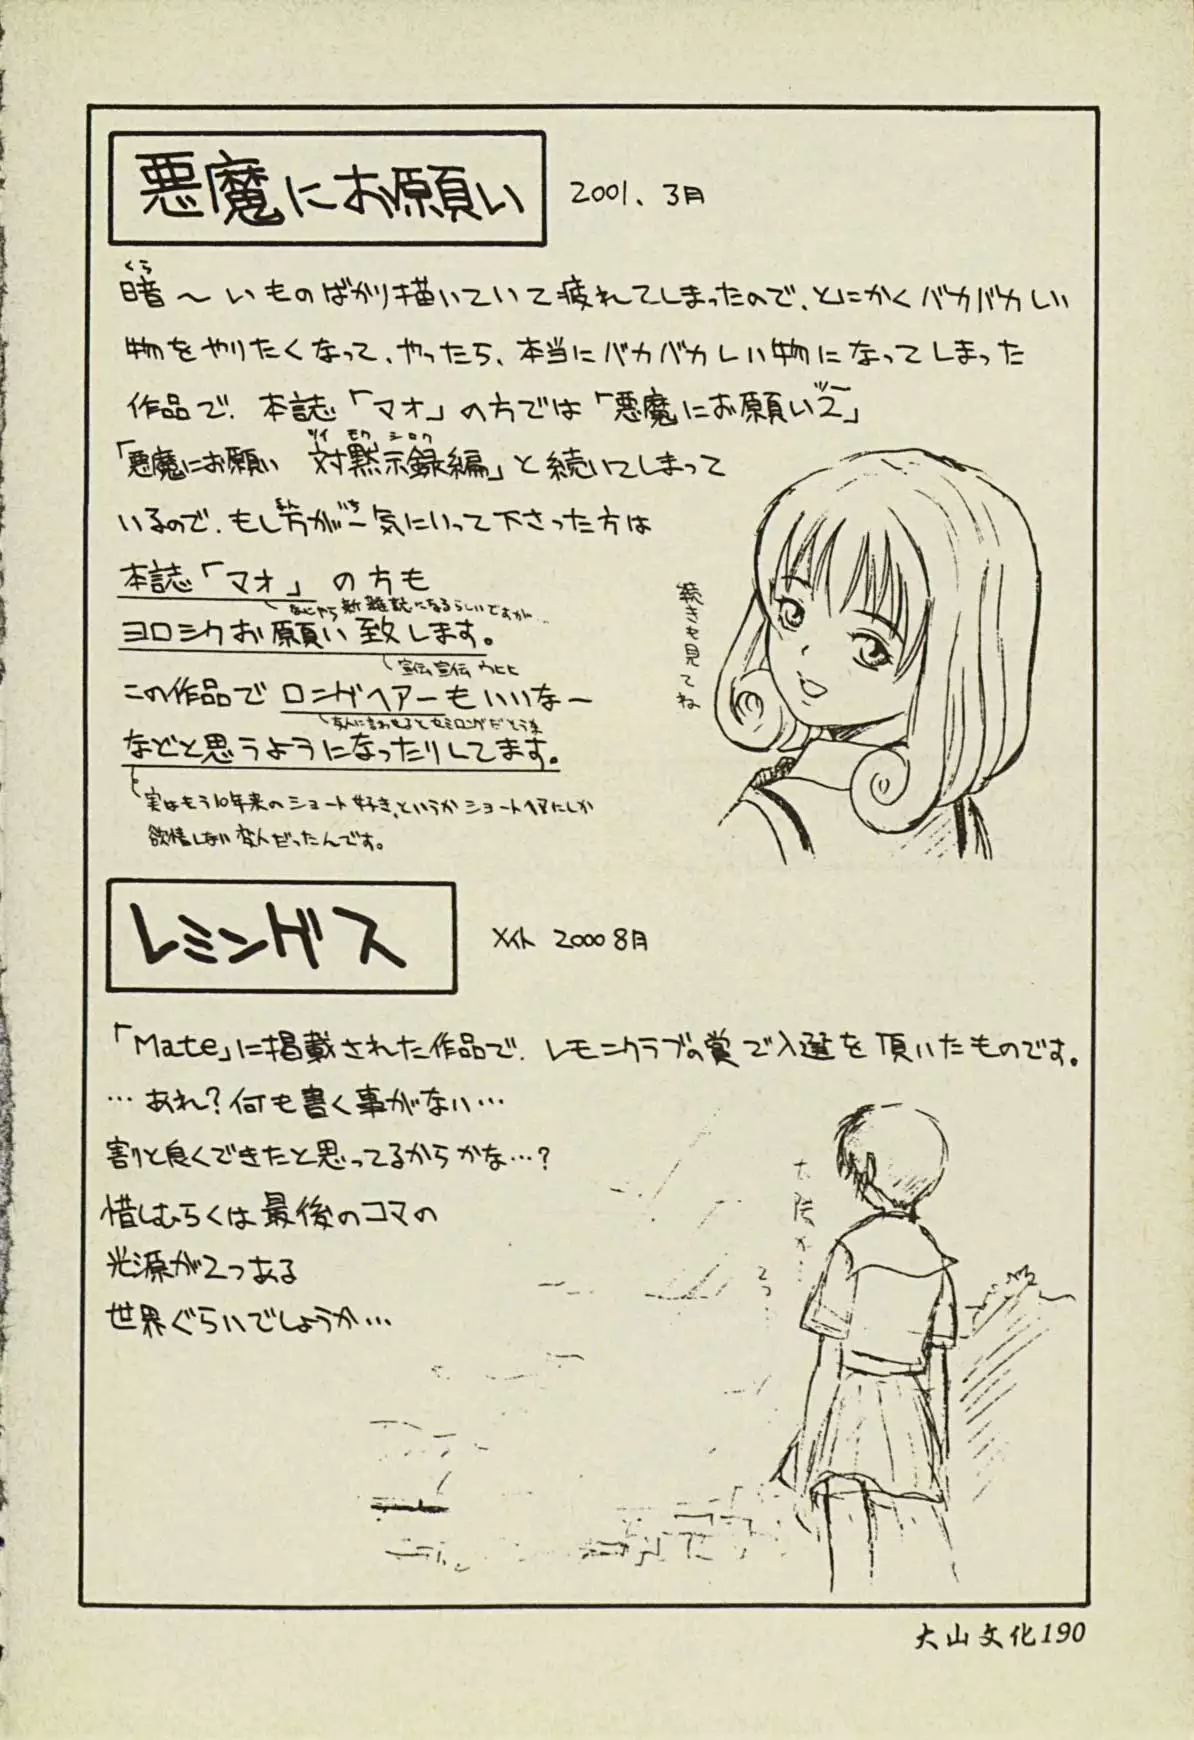 悪魔にお願い
2001、3月
くら
暗〜いものばかり描いていて疲れてしまったので、とにかくバカバカしい
物をやりたくなって、やったら、本当にバカバカしい物になってしまった
作品で、本誌「マオ」の方では「悪魔にお願い2」
「悪魔にお願い 対黙示録編」と続いてしまって
ツイ モクシロク
いるので、もし万が一気にいって下さった方は
本誌「マオ」の方も
なにやら新雑誌になるらしいですが…
ヨロシクお願い致します。
宣伝宣伝 ウヒヒ
この作品でロングヘアーもいいな〜
友人に言わせるとセミロングだとうな
などと思うようになったりしてます。
と
実はもう10年来のショート好き、というかショートヘアにしか
欲情しない変人だったんです。
続きも見てね
レミングス
メイト 2000 8月
「Mate」に掲載された作品で、レモンクラブの賞で入選を頂いたものです。
…あれ?何も書く事がない…
割と良くできたと思ってるからかな…?
惜しむらくは最後のコマの
光源が2つある
世界ぐらいでしょうか…
太陽が…
2つ…
大山文化190